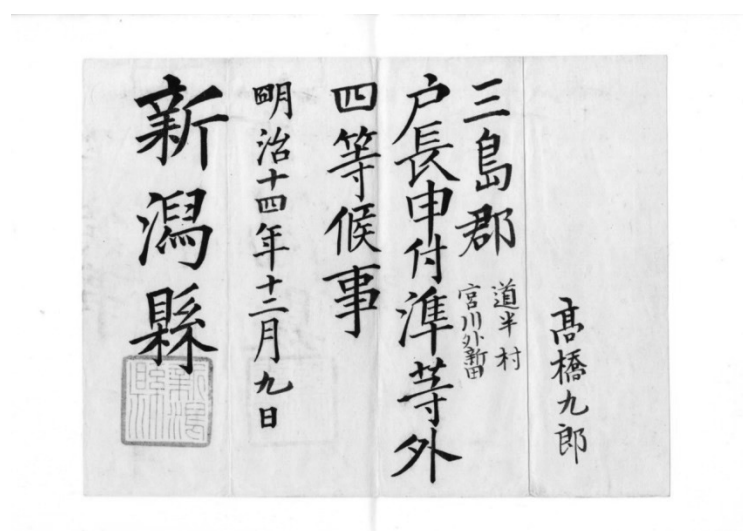 髙橋九郎
三島郡 道半村
宮川外新田
戸長申付準等外
四等候事
明治十四年十二月九日
新潟縣
新潟縣